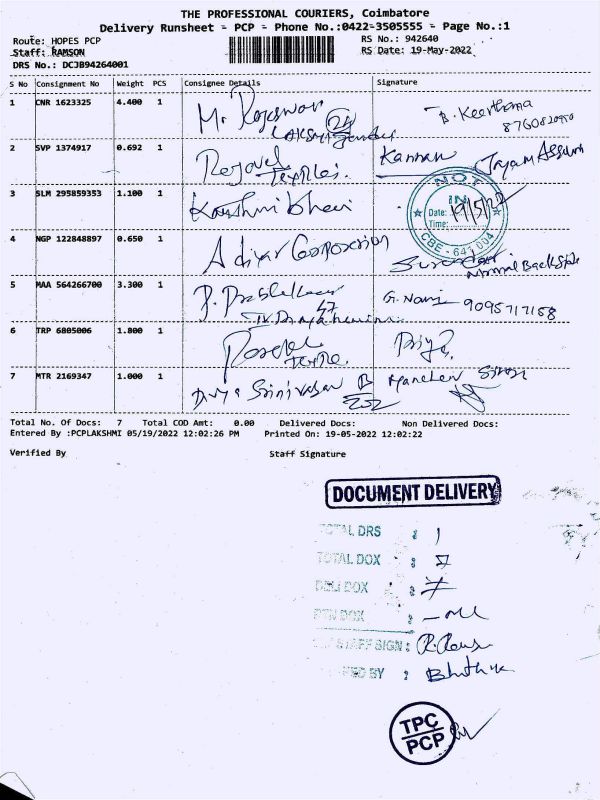 THE PROFESSIONAL COURIERS, Coimbatore
Delivery Runsheet - PCP - Phone No.:0422-3505555 - Page No.:1
Route: HOPES PCP RS No.: 942640
Staff: RAMSON RS Date: 19-May-2022
DRS No.: DCJB94264001
S No Consignment No Weight PCS Consignee Details Signature
1 CNR 1623325 4.400 1 Mr Rajeswar B. Keerthana
8760820950
2 SVP 1374917 0.692 1 Textiles. Kannan
3 SLM 295859353 1.100 1
NOT IN
Date: 19/5/22
Time:
CBE - 641 004
4 NGP 122848897 0.650 1 Adiyar Corporation
5 MAA 564266700 3.300 1 P. Prabhakaar 9095717158
6 TRP 6805006 1.800 1 Priya.
7 MTR 2169347 1.000 1 Divya Srinivasan B
232
Total No. Of Docs: 7 Total COD Amt: 0.00 Delivered Docs: Non Delivered Docs:
Entered By :PCPLAKSHMI 05/19/2022 12:02:26 PM Printed On: 19-05-2022 12:02:22
Verified By Staff Signature
DOCUMENT DELIVERY
TOTAL DRS : 1
TOTAL DOX : 7
DELI DOX : 7
RTN DOX : - nil
STAFF SIGN :
BY :
TPC
PCP